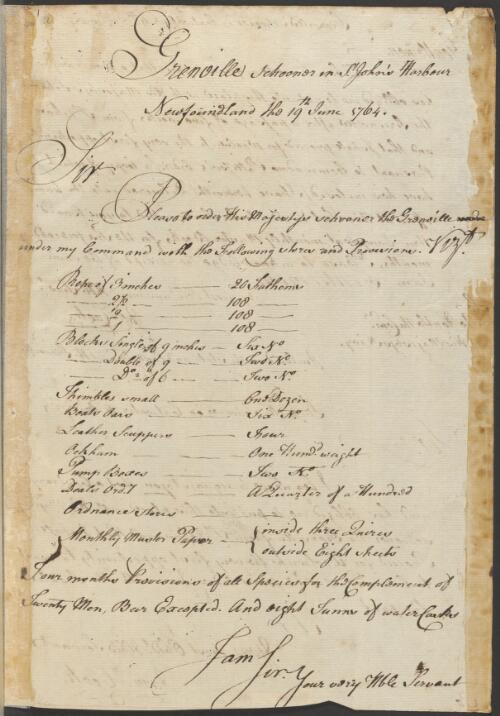 Grenville Schooner in St. John's Harbour
Newfoundland the 19th June 1764.
Sir
Please to order His Majestys schooner the Grenville
under my Command with the following stores and Provisions. Vizt.
Rope of 3 inches — 20 Fathoms
— 2½ — 108 —
— 108 —
— 1 — 108 —
Blocks Single of 9 inches — Six No
— Double of 9 — Two No.
— Do. of 6 — Two No.
Thimbles small — One Dozen
Boats Oars — Six No.
Leather Scuppers — Four
Ockham — One Hundd. weight
Pump Boxes — Two No
Deals Ord. — A Quarter of a Hundred
Ordnance Stores
Monthly Muster Paper — { inside three Quires
outside Eight sheets
Four months Provisions of all Species for the Complement of
Twenty Men, Bear Excepted. And eight Tunns of water Casks
I am
Sir.
Your very Hble Servant